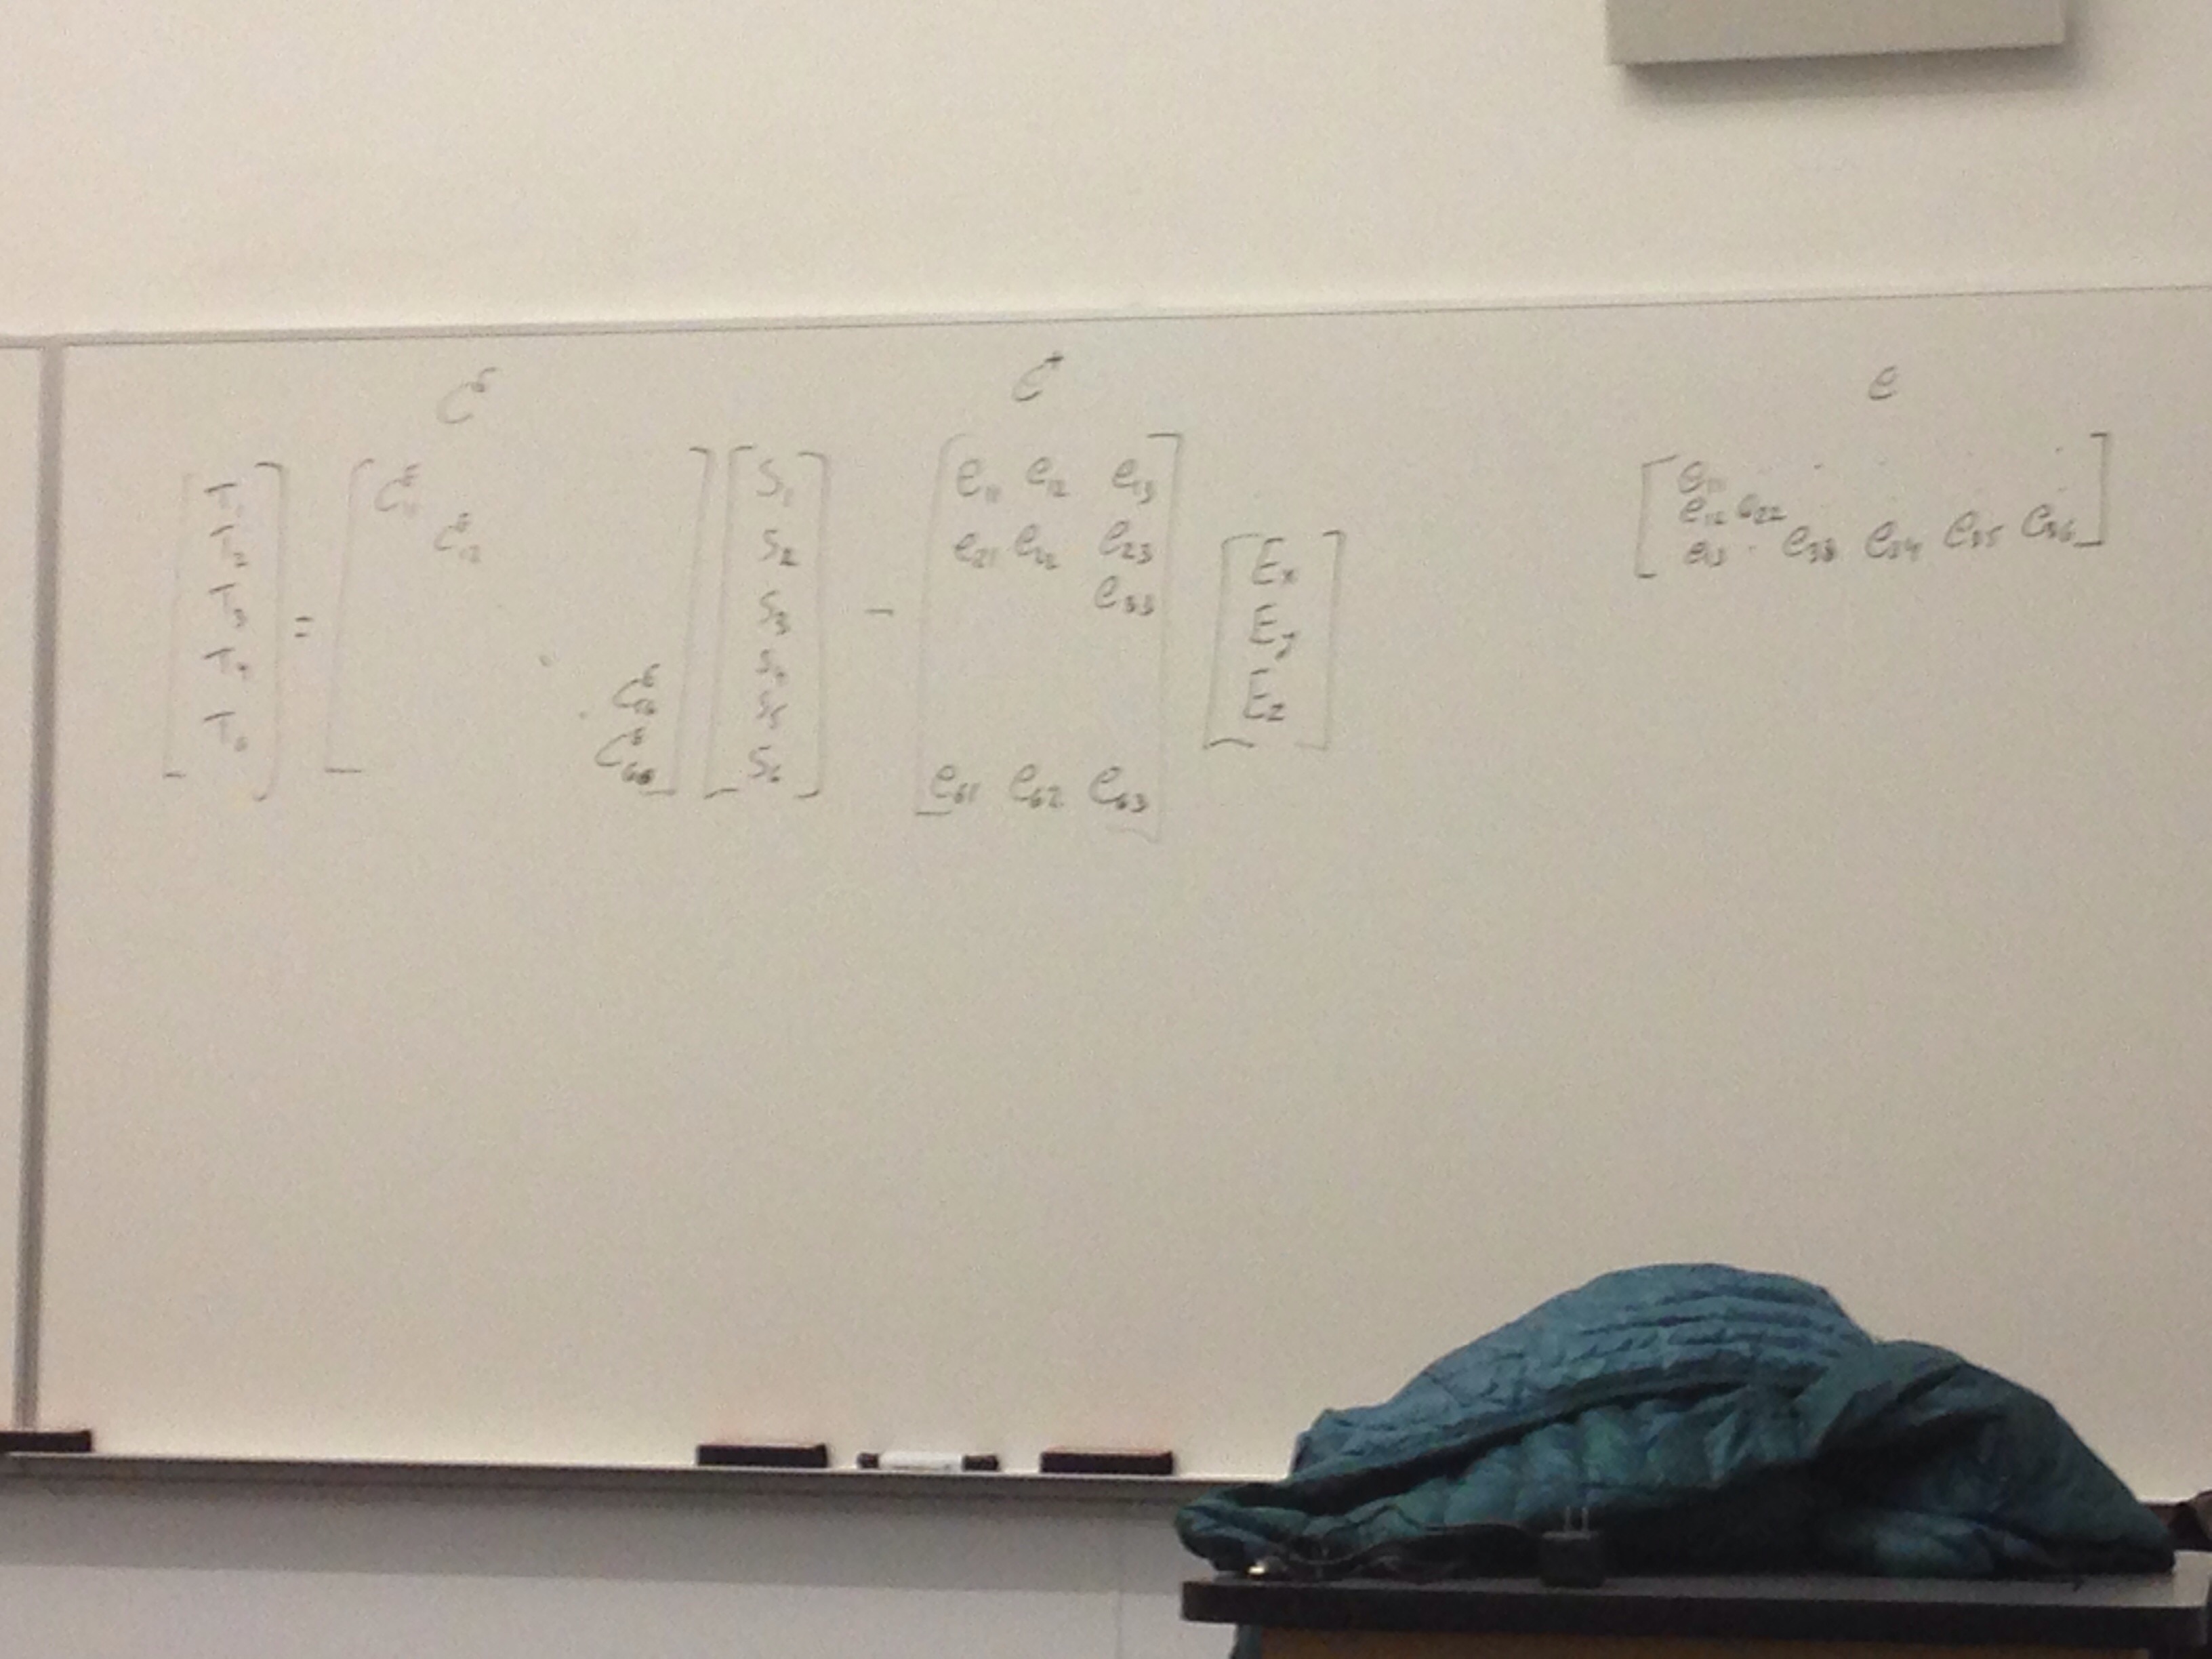 C^E e^t e
[T₁ T₂ T₃ T₄ T₆] = [C₁₁^E C₁₂^E C₆₆^E] [S₁ S₂ S₃ S₄ S₅ S₆] - [e₁₁ e₁₂ e₁₃
e₂₁ e₂₂ e₂₃
e₃₃
e₆₁ e₆₂ e₆₃] [E_x E_y E_z]
[e₁₁
e₁₂ e₂₂
e₁₃ e₃₃ e₃₄ e₃₅ e₃₆]